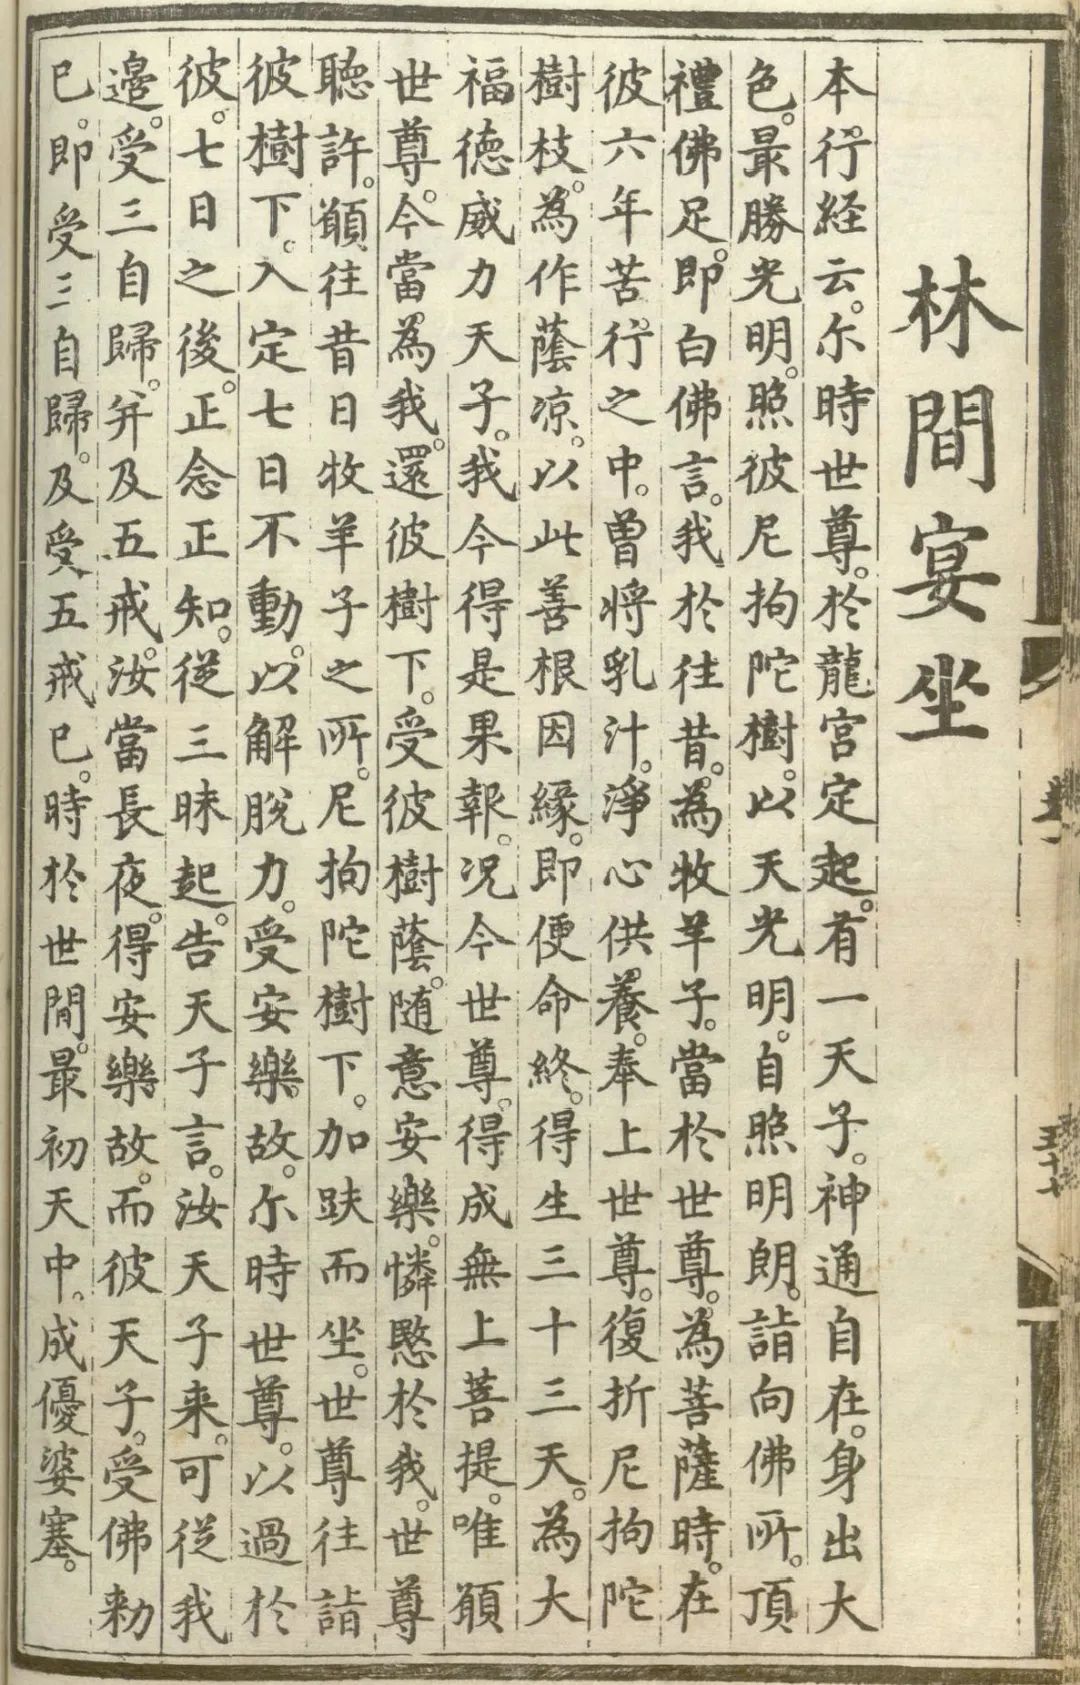 林間宴坐
本行経云。尒時世尊。於龍宮定起。有一天子。神通自在。身出大
色。最勝光明。照彼尼拘陀樹。以天光明。自照明朗。詣向佛所。頂
禮佛足。即白佛言。我於往昔。為牧羊子。當於世尊。為菩薩時。在
彼六年苦行之中。曽將乳汁。淨心供養。奉上世尊。復折尼拘陀
樹枝。為作蔭凉。以此善根因緣。即便命終。得生三十三天。為大
福德威力天子。我今得是果報。况今世尊。得成無上菩提。唯願
世尊。今當為我。還彼樹下。受彼樹蔭。随意安樂。憐愍於我。世尊
聽許。願往昔日牧羊子之所。尼拘陀樹下。加趺而坐。世尊往詣
彼樹下。入定七日不動。以解脫力。受安樂故。尒時世尊。以過於
彼。七日之後。正念正知。従三昧起。告天子言。汝天子来。可従我
邊。受三自歸。并及五戒。汝當長夜。得安樂故。而彼天子。受佛勑
已。即受三自歸。及受五戒已。時於世間。最初天中。成優婆塞。
五十七